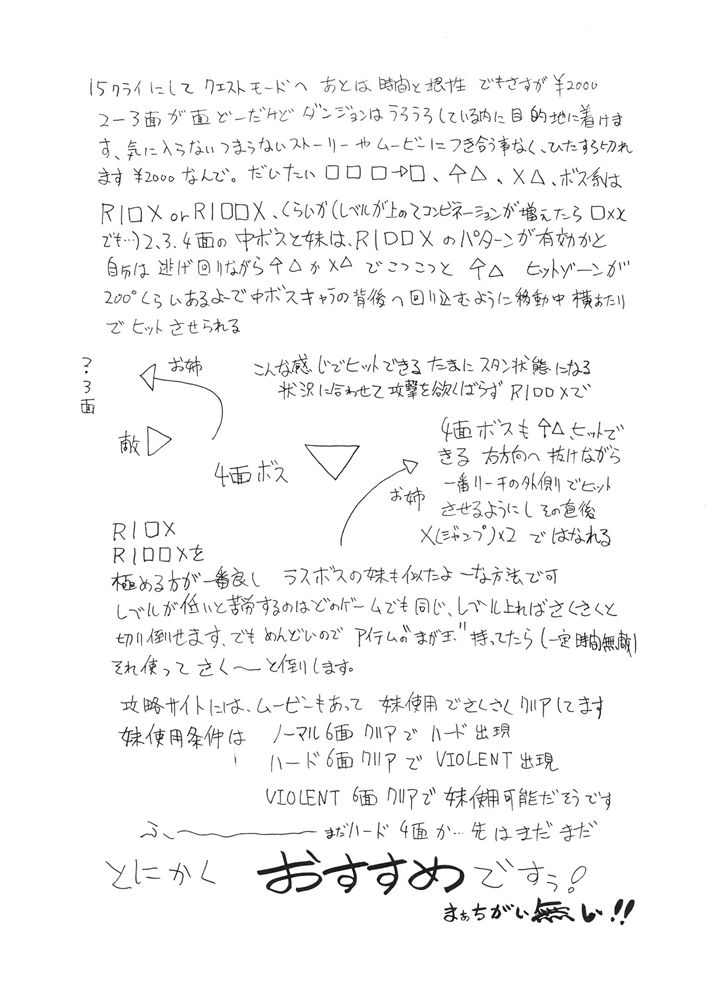 15クライにして クエストモードへ あとは 時間と根性 でもさすが ¥2000
2−3面が 面どーだけど ダンジョンはうろうろしている内に目的地に着けま
す、気に入らないつまらないストーリーやムービーにつき合う事なく、ひたすら切れ
ます ¥2000 なんで。だいたい □□□→□、↑△、X△、ボス系は
R1□X or R1□□X、くらいか(レベルが上のてコンビネーションが増えたら □××
でも…)2.3.4面の 中ボスと妹は、R1□□X のパターンが有効かと
自分は 逃げ回りながら ↑△ か X△ でこつこつと ↑△ ヒットゾーンが
200°くらいあるよーで中ボスキャラの背後へ回り込むように移動中 横あたり
で ヒット させられる
?.3面
お姉
こんな感じでヒットできる たまに スタン状態になる
状況に合わせて攻撃を欲くばらず R1□□Xで
敵
4面ボス
お姉
4面ボスも ↑△、ヒットで
きる 右方向へ 抜けながら
一番リーチの外側でヒット
させるようにし その直後
X(ジャンプ)×2 で はなれる
R1□X
R1□□Xを
極める方が一番良し ラスボスの妹も似たよーな方法で可
レベルが低いと苦労するのはどのゲームでも同じ、レベル上ればさくさくと
切り倒せます、でも めんどいので アイテムの"まが玉"持ってたら(一定時間無敵)
それ使って さく〜と倒します。
攻略サイトには、ムービーもあって 妹使用でさくさく クリアしてます
妹使用条件は ノーマル6面 クリアで ハード出現
ハード6面 クリアで VIOLENT 出現
VIOLENT 6面 クリアで 妹使用可能だそうです
ふ、〜 まだハード 4面か… 先はまだ まだ
とにかく おすすめですぅ!
まぁちがい無し!!